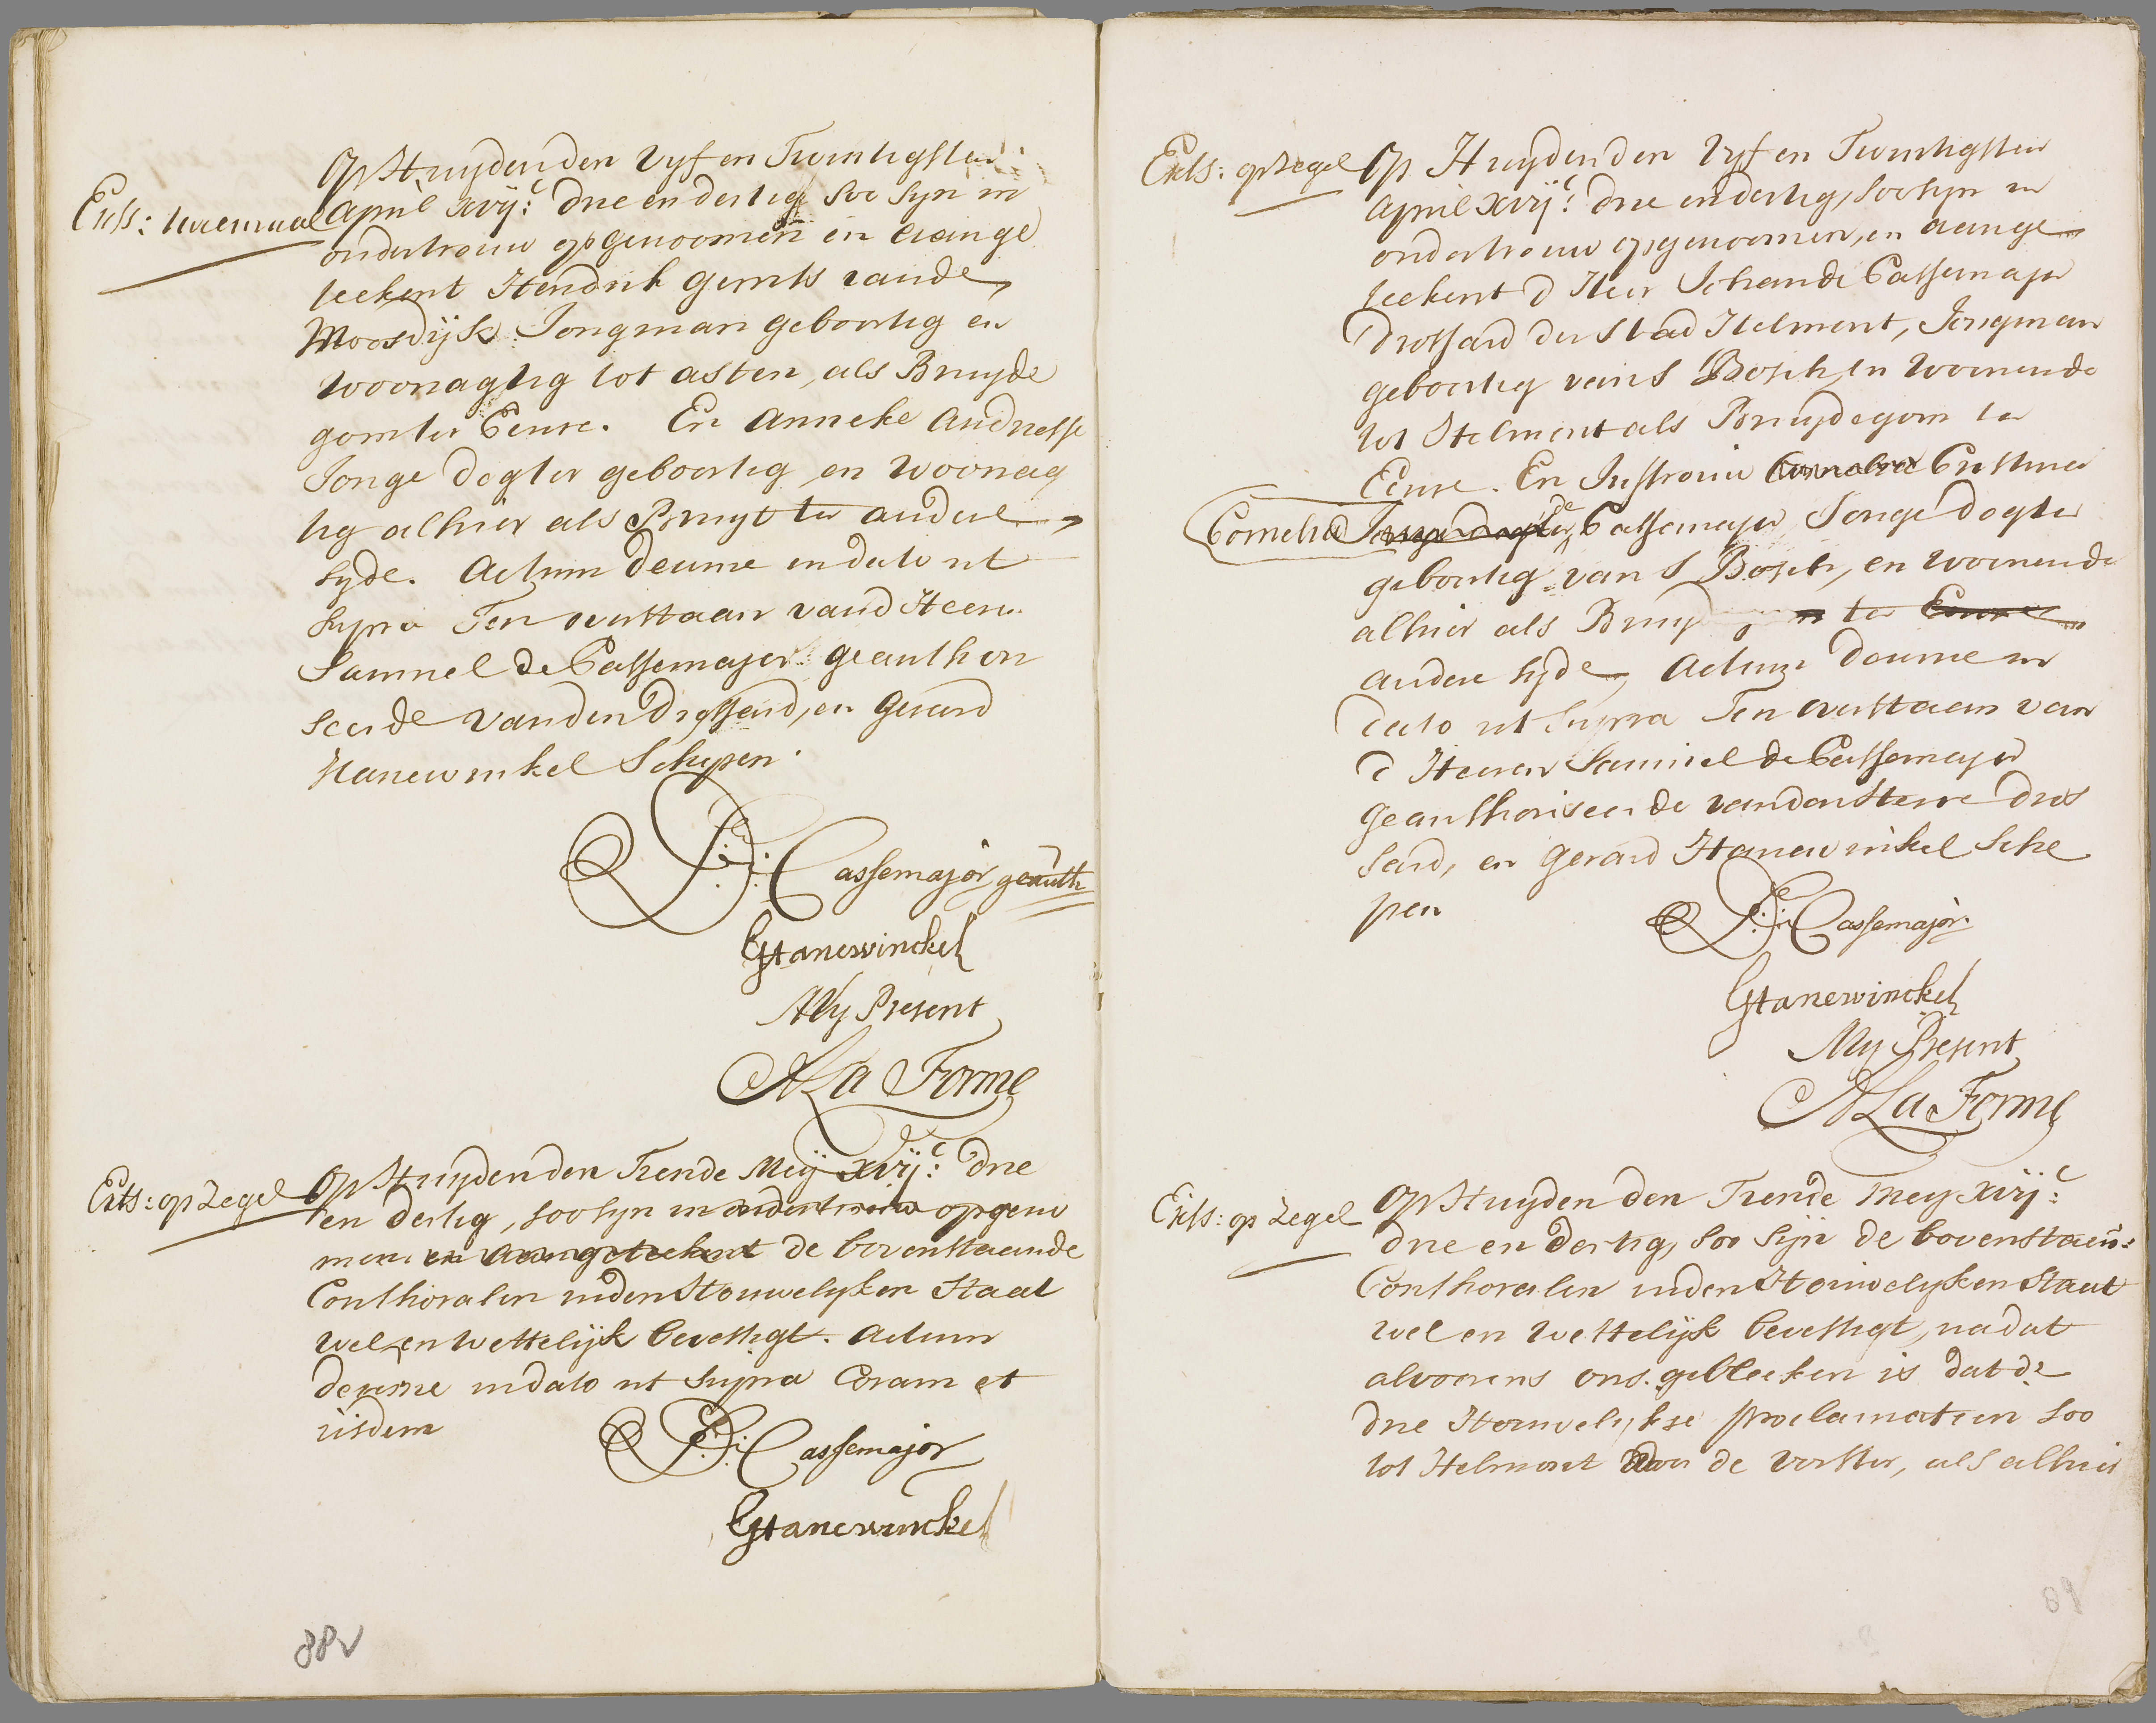 Op Huyden den Vyf en Twintigsten
Exts: tweemaal April xvijc: drie en dertig soo syn in
ondertrouw opgenoomen en aange
teekent Hendrik Gerrits vande
Moosdijk Jongman geboortig en
woonagtig tot asten, als Bruyde
gom ter Eenre. En Anneke Andriesse
Jonge dogter geboortig en woonag
tig alhier als Bruyt ter andere
syde. Actum deurne in dato ut
supra Ten overstaan vand Heeren
Samuel de Cassemajor geauthori
seerde vanden Drossard, en Gerard
Hanewinkel Schepen.
S: D: Cassemajor geauth
GHanewinckel
My Present
A La Forme
Exts: op Zegel Op Huyden den Tiende Mey xvijc: drie
en dertig, soo syn in ondertrouw opgeno
men en aangeteekent de bovenstaande
Conthoralen inden Houwelyken Staat
wel en wettelijk bevestigt. Actum
deurne in dato ut supra Coram et
iisdem
S: D: Cassemajor
GHanewinckel
88v
Exts: op Zegel Op Huyden den Vyf en Twintigsten
April xvijc: drie en dertig, soo syn in
ondertrouw opgenoomen, en aange
teekent d Heer Johan de Cassemajor
Drossard der Stad Helmont, Jongman
geboortig van S Bosch, en Woonende
tot Helmont als Bruydegom ter
Eenre. En Juffrouw Cornelia Cristina
Cornelia Jonge dogter de Cassemajor Jonge dogter
geboortig van S Bosch, en woonende
alhier als Bruyd ter Eenre
andere syde, Actum deurne in
dato ut supra Ten overstaan van
d Heeren Samuel de Cassemajor
geauthoriseerde vanden Heere dros
sard, en Gerard Hanewinkel Sche
pen
S: D: Cassemajor.
GHanewinckel
My Present
A La Forme
Exts: op Zegel Op Huyden den Tiende Mey xvijc:
drie en dertig, soo sijn de bovenstaen:
Conthoralen inden Houwelyken Staat
wel en wettelijk bevestigt, na dat
alvoorens ons gebleeken is dat de
drie Houwelykse proclamatien soo
tot Helmont door de vorster, als alhier
89